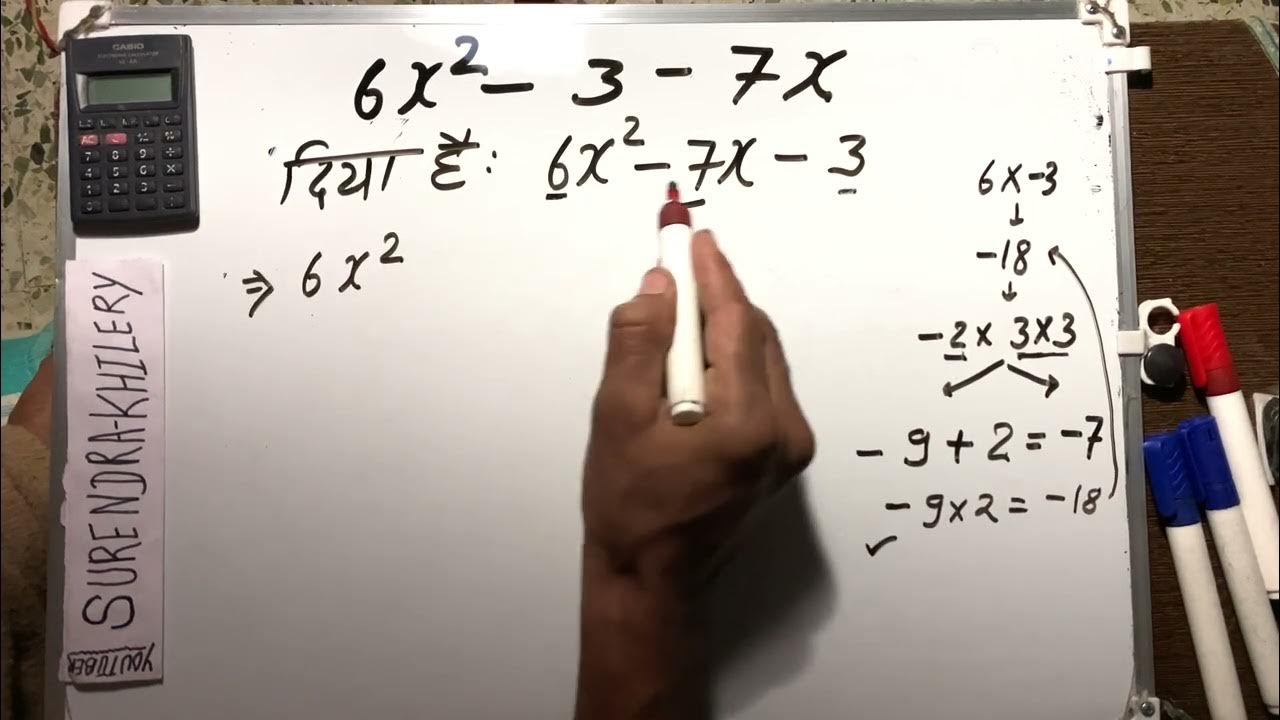 CASIO
6x² - 3 - 7x
दिया है: 6x² - 7x - 3
⇒ 6x²
6 x -3
↓
-18
↓
-2 x 3 x 3
-9 + 2 = -7
-9 x 2 = -18
✓
SURENDRA-KHILERY
YOUTUBER